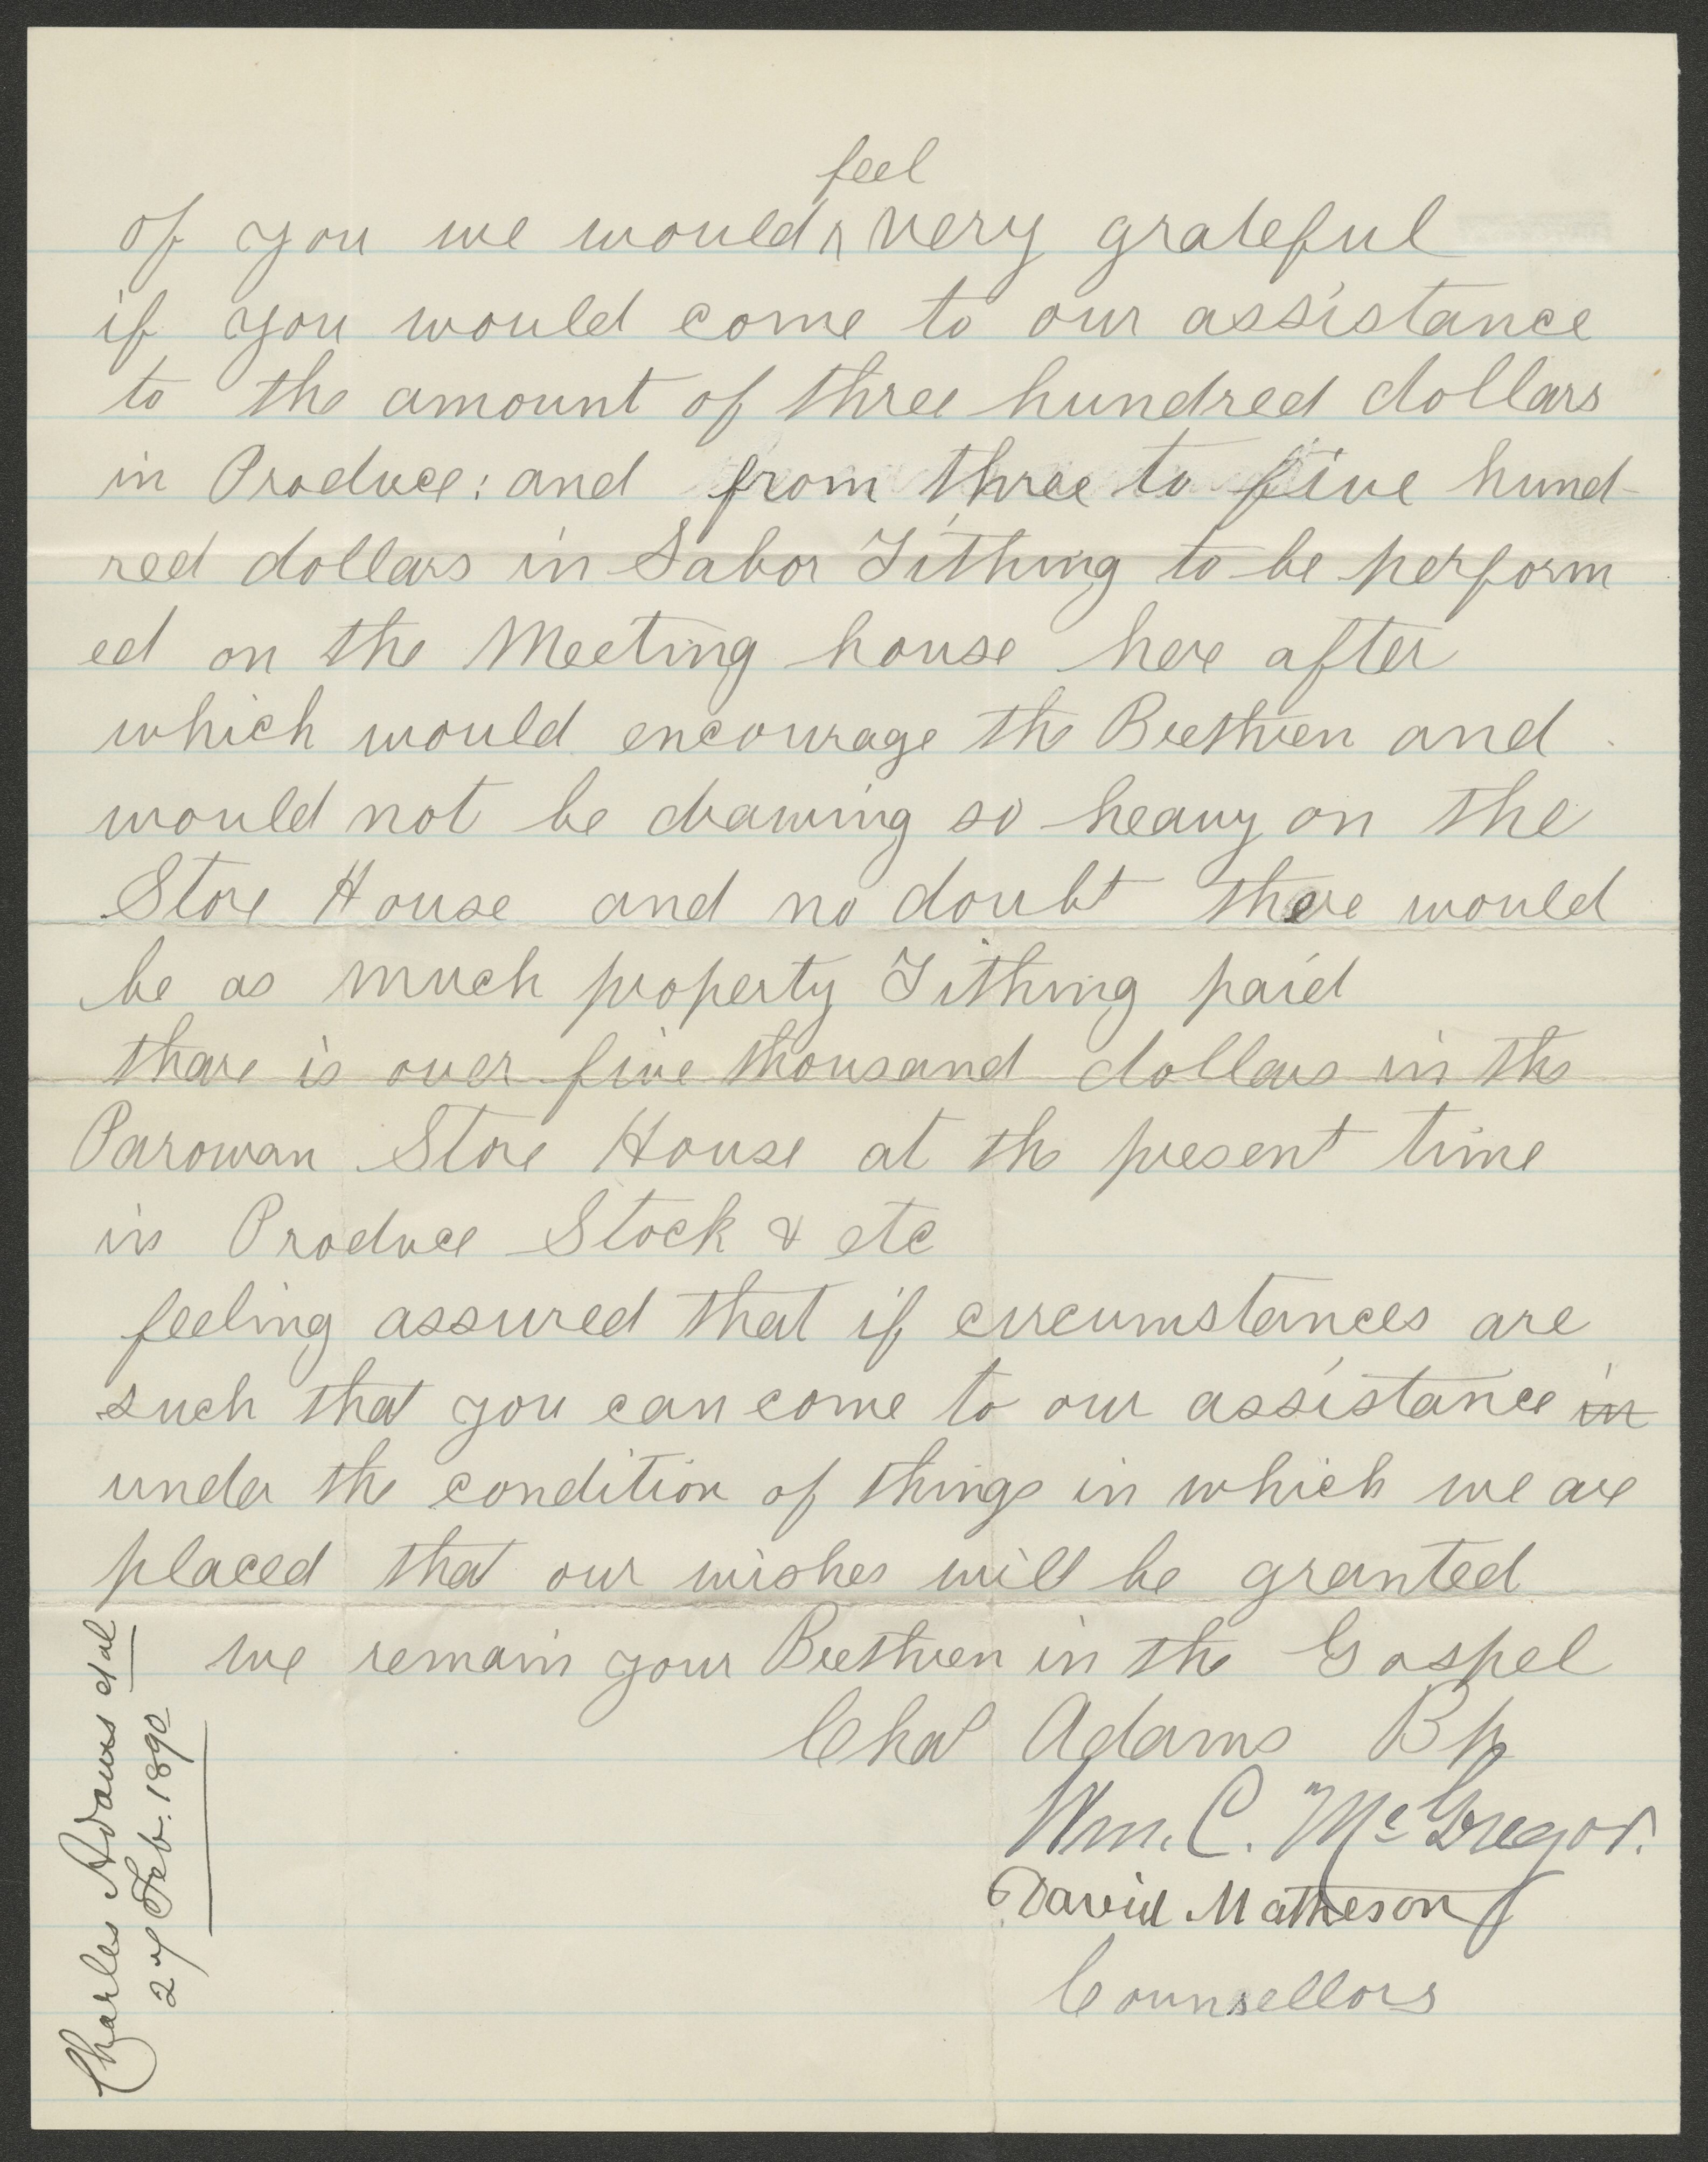 feel
of you we would ^ very grateful
if you would come to our assistance
to the amount of three hundred dollars
in Produce: and from three to five hund-
red dollars in Labor Tithing to be perform
ed on the Meeting house here after
which would encourage the Brethren and
would not be drawing so heavy on the
Store House and no doubt there would
be as much property Tithing paid
thare is over five thousand dollars in the
Parowan Store House at the present time
in Produce Stock & etc
feeling assured that if circumstances are
such that you can come to our assistance in
under the condition of things in which we are
placed that our wishes will be granted
we remain your Brethren in the Gospel
Chas Adams Bp
Wm. C. McGregor.
David Matheson
Counsellors
Charles Adams et al
27 Feb. 1890